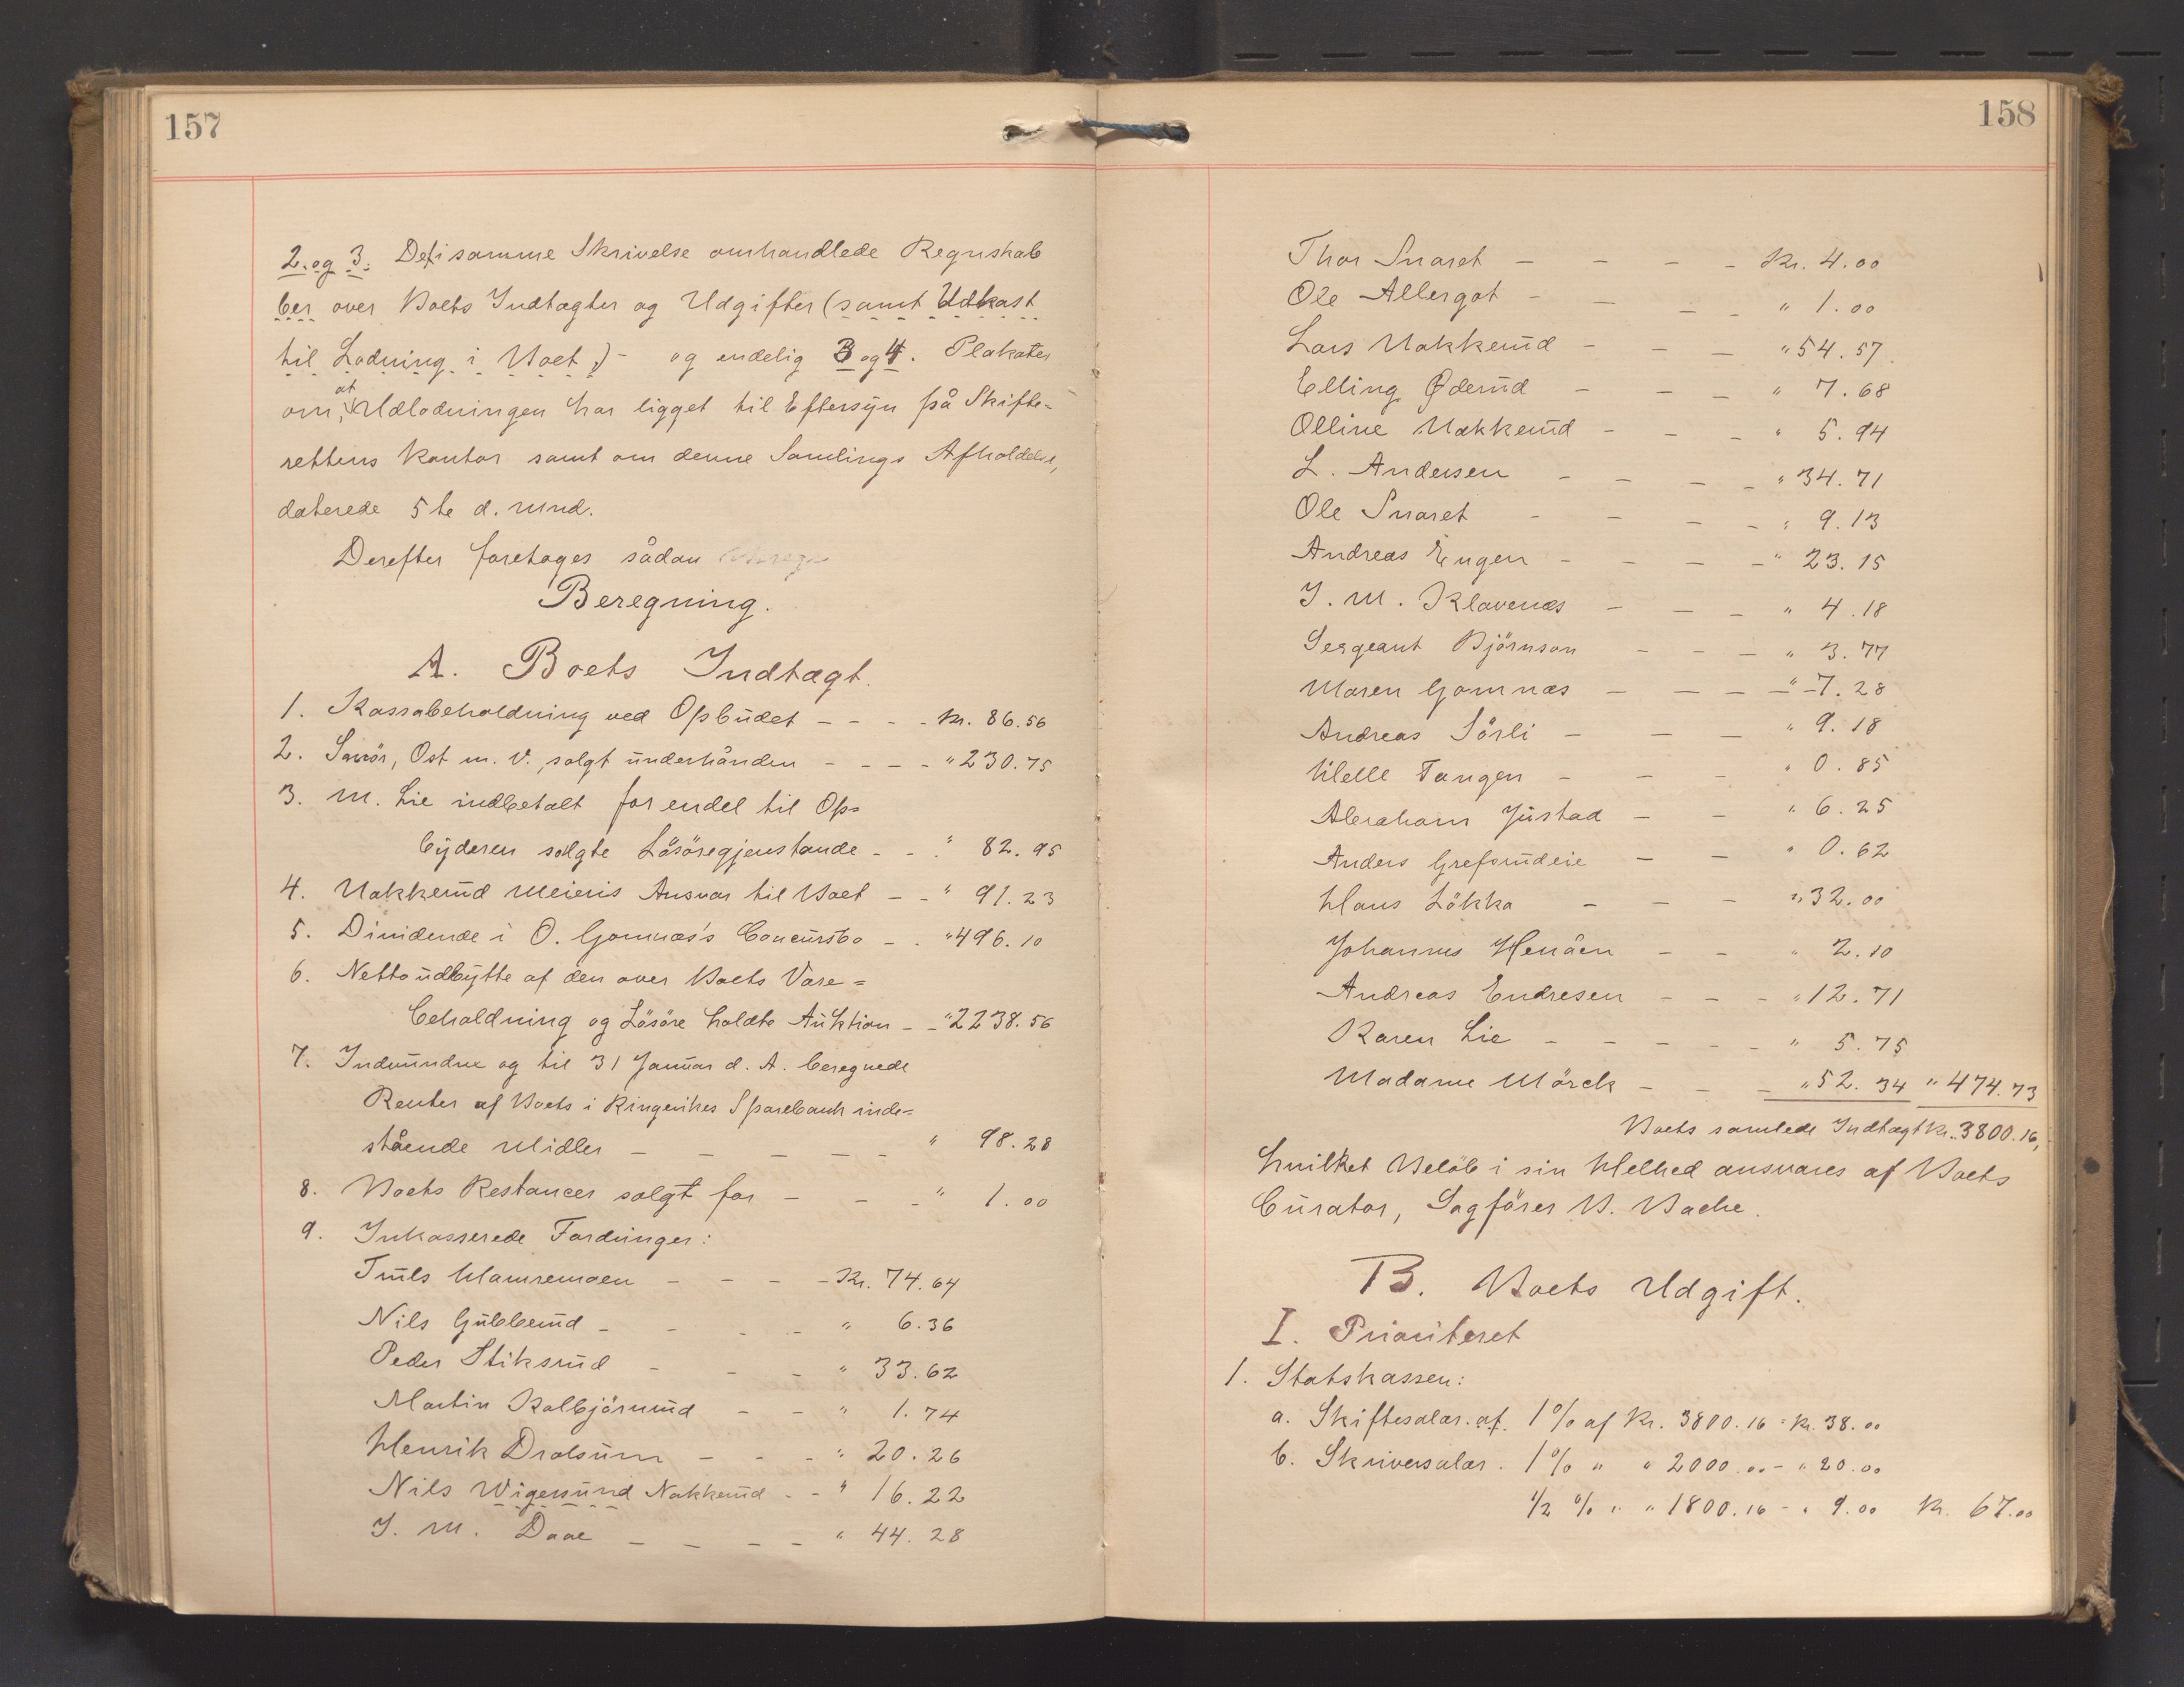 157
2. og 3. De i samme Skrivelse omhandlede Regnskab
ber over Boets Indtægter og Udgifter (samt Udkast
til Lodning i Boet,) – og endelig 3 og 4. Plakater
om, at Udlodningen har ligget til Eftersyn på Skifte-
rettens Kontor samt om denne Samlings Afholdelse,
daterede 5te d. Mnd.
Derefter foretages sådan
Beregning.
A. Boets Indtægt.
1. Kassabeholdning ved Opbudet – – – – Kr. 86.56
2. Smör, Ost m. V., solgt underhånden – – – – " 230.75
3. M. Lie indbetalt for endel til Op-
byderen solgte Lösöregjenstande – – " 82.95
4. Nakkerud Meieris Ansvar til Boet – – " 91.23
5. Dividende i O. Gomnæs's Concursbo – . " 496.10
6. Nettoudbytte af den over Boets Vare=
beholdning og Lösöre holdte Auktion – – " 2238.56
7. Indvundne og til 31 Januar d. A. beregnede
Renter af Boets i Ringerikes Sparebank inde=
stående Midler – – – – – " 98.28
8. Boets Restancer solgt for – – – " 1.00
9. Inkasserede Fordringer:
Truls Hamremoen – – – – Kr. 74.64
Nils Gubberud – – – – " 6.36
Peder Stiksrud – – – " 33.62
Martin Kolbjörnrud – – " 1.74
Henrik Drolsum – – – " 20.26
Nils Wigersund Nakkerud – – " 16.22
J. M. Daae – – – – " 44.28
158
Thor Snaret – – – – Kr. 4.00
Ole Allergot – – – – " 1.00
Lars Nakkerud – – – " 54.57
Elling Øderud – – – " 7.68
Olline Nakkerud – – – " 5.94
L. Andersen – – – – " 34.71
Ole Snaret – – – – " 9.13
Andreas Engen – – – – " 23.15
J. M. Klavenæs – – – " 4.18
Sergeant Björnson – – – " 3.77
Maren Gomnæs – – – – " – 7.28
Andreas Sörli – – – " 9.18
Helle Tangen – – – " 0.85
Abraham Justad – – " 6.25
Anders Grefsrudeie – – " 0.62
Hans Lökka – – – " 32.00
Johannes Henåen – – " 2.10
Andreas Endresen – – – " 12.71
Karen Lie – – – – – " 5.75
Madame Mörck – – – " 52.34 " 474.73
Boets samlede Indtægt Kr. 3800.16,
hvilket Belöb i sin Helhed ansvares af Boets
Curator, Sagförer B. Bache.
B. Boets Udgift.
I. Prioriteret
1. Statskassen:
a. Skiftesalær. af. 1% af Kr. 3800.16 = Kr. 38.00
b. Skriversalær. 1% " " 2000.00 – " 20.00
1/2 % " " 1800.16 – " 9.00 Kr. 67.00